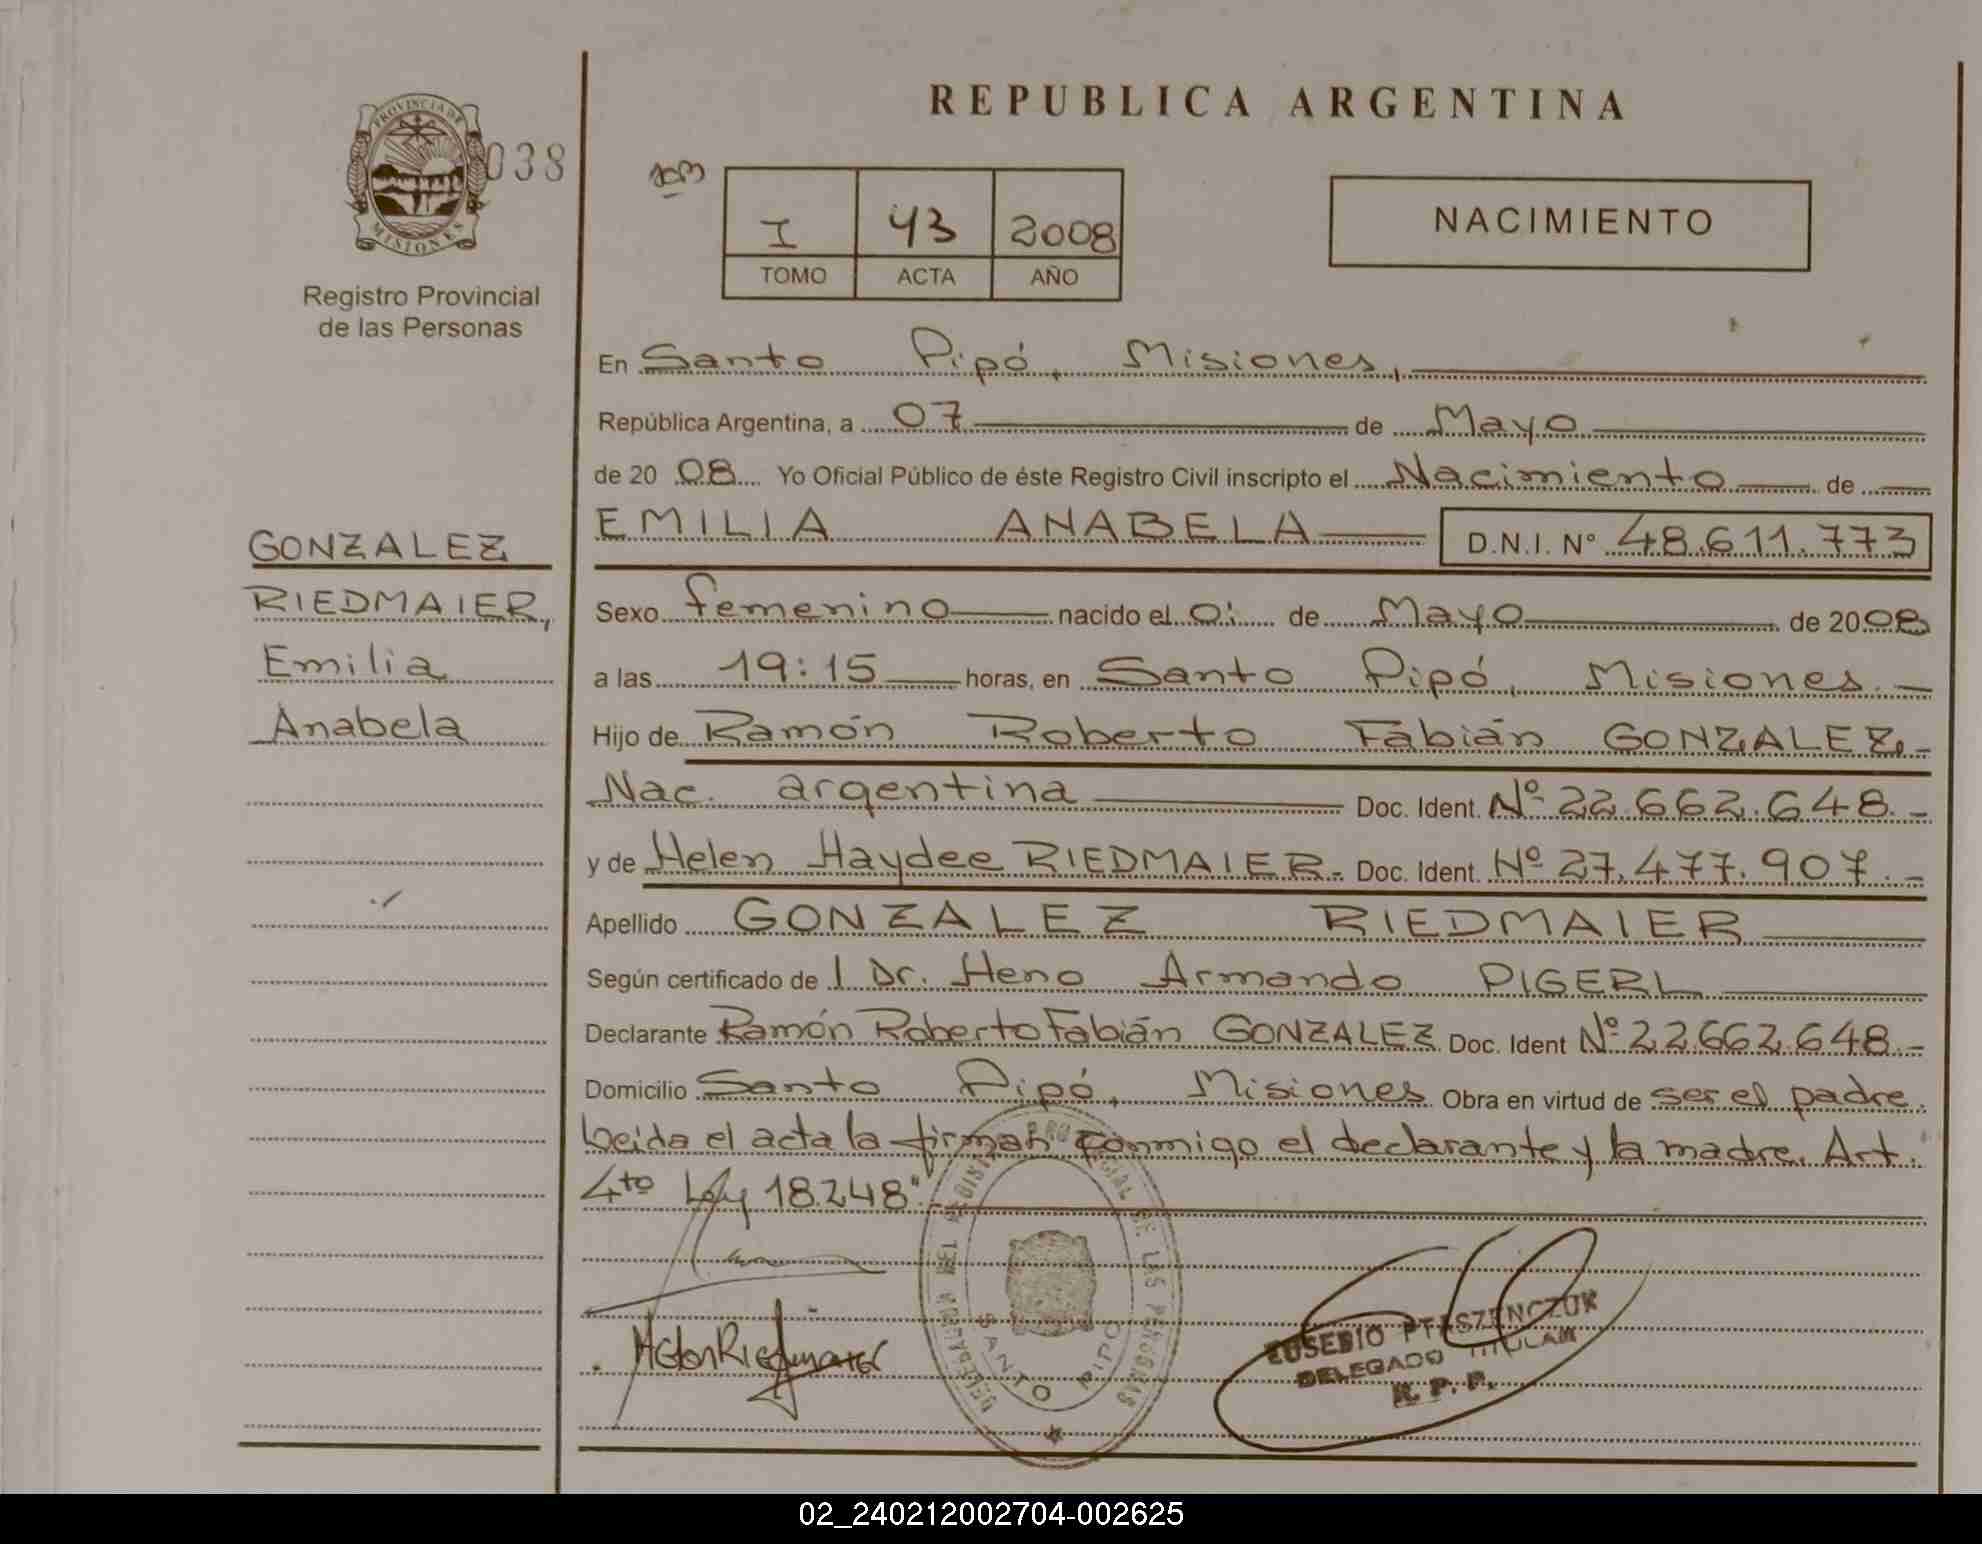 REPUBLICA ARGENTINA
PROVINCIA DE
MISIONES
038
Registro Provincial
de las Personas
I 43 2008
TOMO ACTA AÑO
NACIMIENTO
En Santo Pipó, Misiones,
República Argentina, a 07 de Mayo
de 20 08 Yo Oficial Público de éste Registro Civil inscripto el Nacimiento de
EMILIA ANABELA D.N.I. Nº 48.611.773
GONZALEZ
RIEDMAIER,
Emilia
Anabela
Sexo femenino nacido el de Mayo de 2008
a las 19:15 horas, en Santo Pipó, Misiones.-
Hijo de Ramón Roberto Fabián GONZALEZ.-
Nac. argentina Doc. Ident. Nº 22.662.648.-
y de Helen Haydee RIEDMAIER- Doc. Ident. Nº 27.477.907.-
Apellido GONZALEZ RIEDMAIER
Según certificado de l Dr. Heno Armando PIGERL
Declarante Ramón Roberto Fabián GONZALEZ Doc. Ident Nº 22.662.648.-
Domicilio Santo Pipó, Misiones Obra en virtud de ser el padre.
Leida el acta la firman conmigo el declarante y la madre. Art.
4to Ley 18.248".-
DELEGACION DEL REGISTRO PROVINCIAL DE LAS PERSONAS
SANTO PIPO
EUSEBIO PTASZENCZUK
DELEGADO TITULAR
R. P. P.
02_240212002704-002625